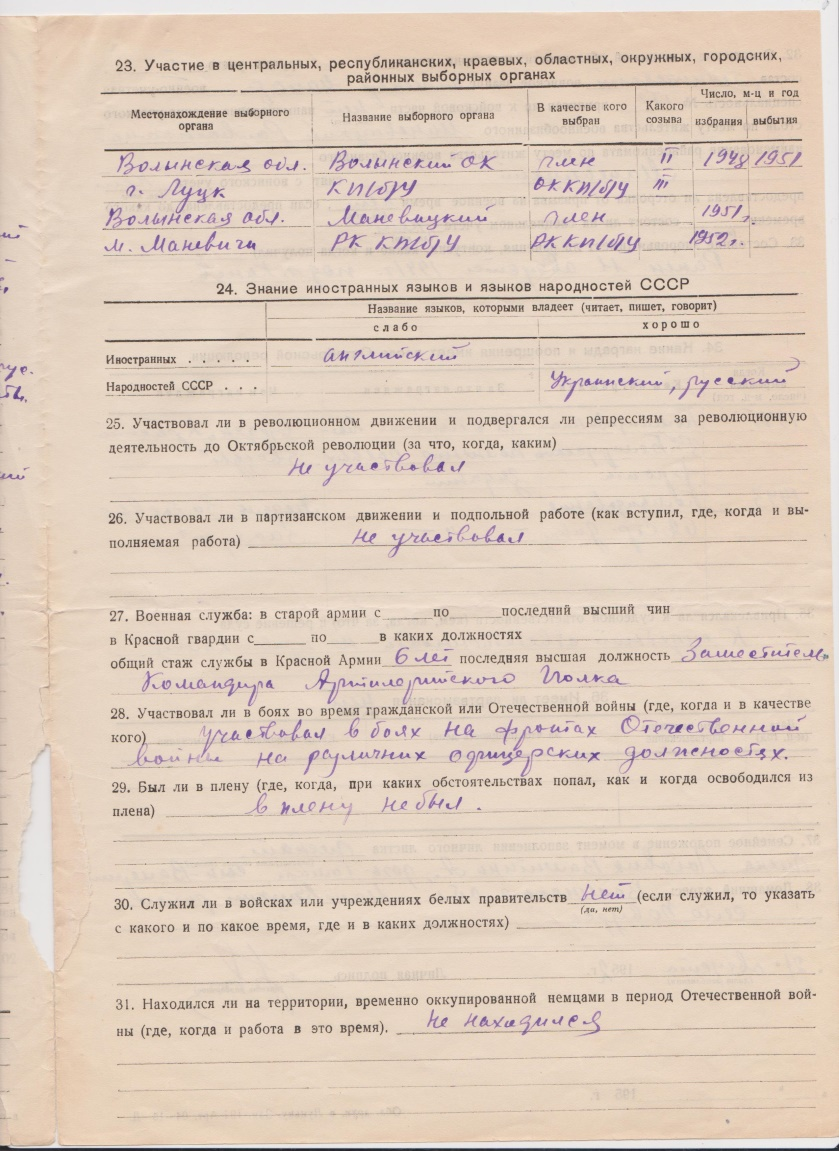 23. Участие в центральных, республиканских, краевых, областных, окружных, городских,
районных выборных органах
Местонахождение выборного органа | Название выборного органа | В качестве кого выбран | Какого созыва | Число, м-ц и год избрания | выбытия
Волынская обл. | Волынский ОК | член | II | 1948 | 1951
г. Луцк | КП/б/У | ОК КП/б/У | III
Волынская обл. | Маневицкий | член | 1951г.
м. Маневичи | РК КП/б/У | РК КП/б/У | 1952г.
24. Знание иностранных языков и языков народностей СССР
Название языков, которыми владеет (читает, пишет, говорит)
слабо | хорошо
Иностранных . . . . . | английский
Народностей СССР . . . | Украинский, русский
25. Участвовал ли в революционном движении и подвергался ли репрессиям за революционную
деятельность до Октябрьской революции (за что, когда, каким)
Не участвовал
26. Участвовал ли в партизанском движении и подпольной работе (как вступил, где, когда и вы-
полняемая работа) Не участвовал
27. Военная служба: в старой армии с по последний высший чин
в Красной гвардии с по в каких должностях
общий стаж службы в Красной Армии 6 лет последняя высшая должность Заместитель
Командира Артилерийского Полка
28. Участвовал ли в боях во время гражданской или Отечественной войны (где, когда и в качестве
кого) участвовал в боях на фронтах Отечественной
войны на различных офицерских должностях.
29. Был ли в плену (где, когда, при каких обстоятельствах попал, как и когда освободился из
плена) в плену не был.
30. Служил ли в войсках или учреждениях белых правительств нет (если служил, то указать
(да, нет)
с какого и по какое время, где и в каких должностях)
31. Находился ли на территории, временно оккупированной немцами в период Отечественной вой-
ны (где, когда и работа в это время). Не находился